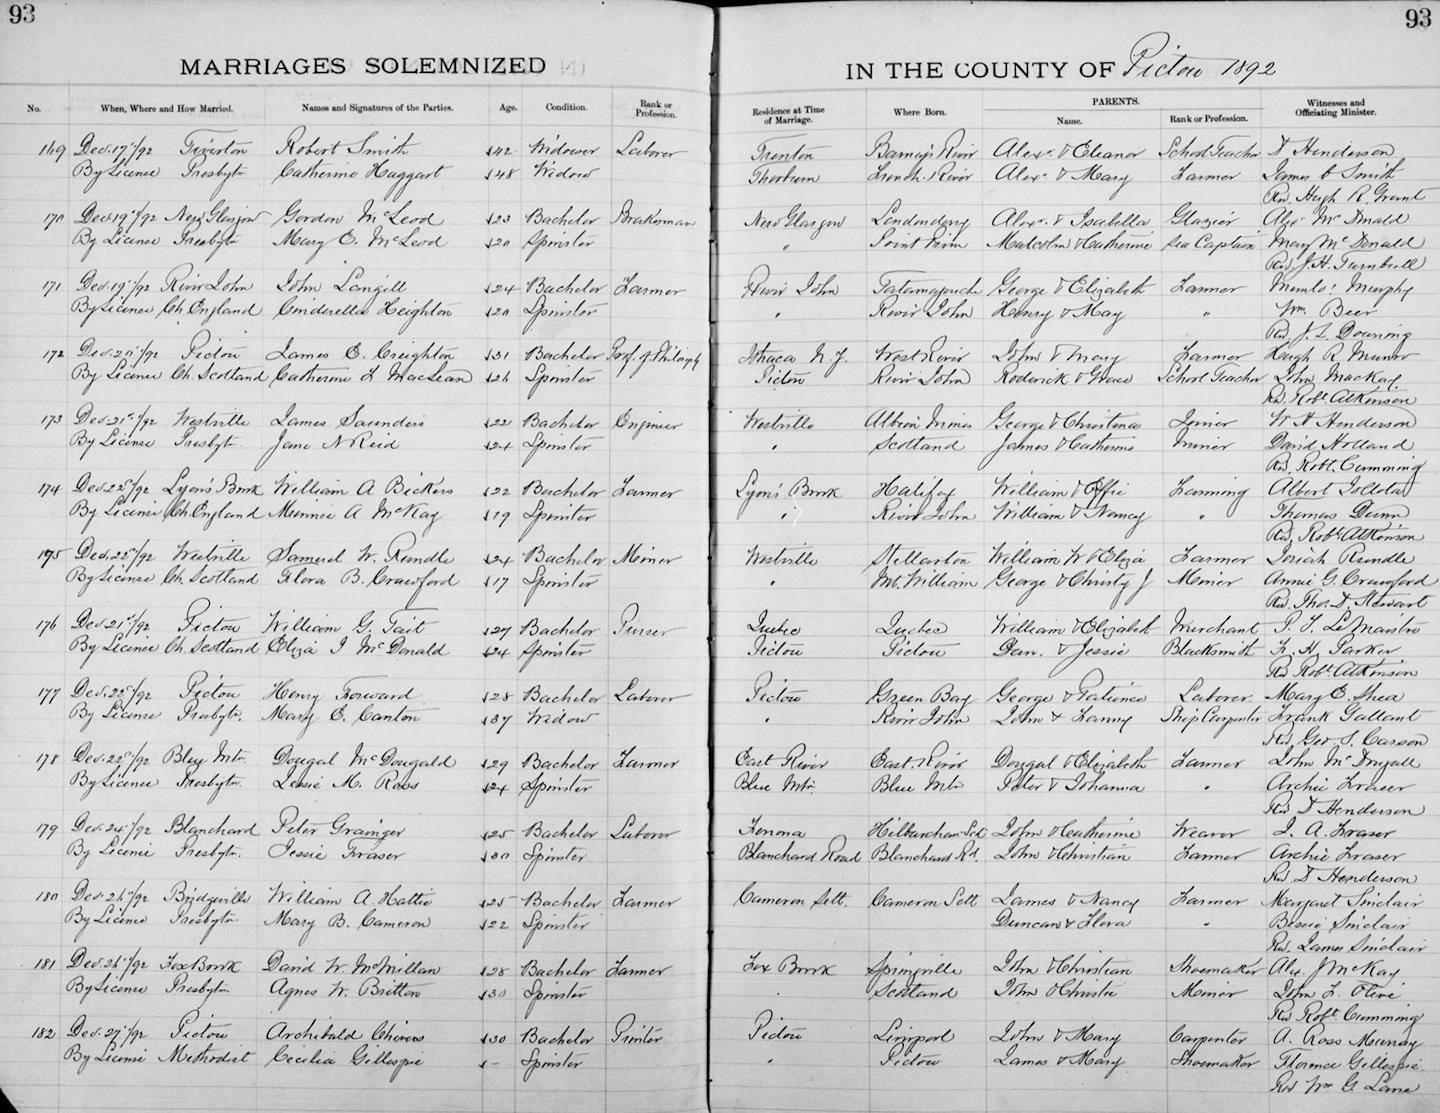 93 93
MARRIAGES SOLEMNIZED IN THE COUNTY OF Pictou 1892
No. When, Where and How Married. Names and Signatures of the Parties. Age. Condition. Rank or Profession. Residence at Time of Marriage. Where Born. PARENTS. Name. Rank or Profession. Witnesses and Officiating Minister.
169 Dec. 17"/92 Robert Smith 42 Widower Laborer Trenton Barney's River Alexr. & Eleanor School Teacher D Henderson
By License Presbytn Catherine Haggart 48 Widow Thorburn French River Alexr. & Mary Farmer James C Smith
Rev. Hugh R. Grant
170 Dec. 19"/92 New Glasgow Gordon McLeod 23 Bachelor Brakeman New Glasgow Londonderry Alexr. & Isabella Glazier Alexr McDonald
By License Presbytn Mary E. McLeod 20 Spinster " Malcolm & Catherine Sea Captain Mary McDonald
Rev J. H. Turnbull
171 Dec. 19"/92 River John John Langill 24 Bachelor Farmer River John Tatamagouche George & Elizabeth Farmer Murphy
By License Ch. England Cinderella Heighton 20 Spinster " River John Henry & May " Wm. Beer
Rev J. L. Downing
172 Dec. 20"/92 Pictou James E. Creighton 31 Bachelor Prof. of Philosophy Ithaca N.Y. West River John & Mary Farmer Hugh R Munro
By License Ch. Scotland Catherine F MacLean 26 Spinster Pictou River John Roderick & Grace School Teacher John MacKay
Rev. Robt. Atkinson
173 Dec. 21st/92 Westville James Saunders 22 Bachelor Engineer Westville Albion Mines George & Christena W H Henderson
By License Presbytn Jane N Reid 24 Spinster " Scotland James & Catherine Miner David Holland
Rev. Robt. Cumming
174 Dec. 22"/92 Lyon's Brook William A Bickers 22 Bachelor Farmer Lyon's Brook Halifax William & Effie Farming Albert
By License Ch. England Minnie A McKay 19 Spinster " River John William & Nancy " Thomas Dunn
Rev. Robt. Atkinson
175 Dec. 22"/92 Westville Samuel W. Rundle 24 Bachelor Miner Westville Stellarton William W & Eliza Farmer Josiah Rundle
By License Ch. Scotland Flora B. Crawford 17 Spinster " Mt. William George & Christy J Miner Annie G. Crawford
Rev. Thos. D. Stewart
176 Dec. 21st/92 Pictou William G. Tait 27 Bachelor Purser Quebec Quebec William & Elizabeth Merchant P. J. Le Maistre
By License Ch. Scotland Eliza J McDonald 24 Spinster Pictou Pictou Dan. & Jessie Blacksmith F. H. Parker
Rev Robt. Atkinson
177 Dec. 22"/92 Pictou Henry Forward 28 Bachelor Laborer Pictou Green Bay George & Patience Laborer Mary E. Shea
By License Presbytn. Mary E. Canton 37 Widow " River John John & Fanny Ship Carpenter Frank Gallant
Rev Geo. S. Carson
178 Dec. 22"/92 Blue Mtn. Dougal McDougald 29 Bachelor Farmer East River East River Dougal & Elizabeth Farmer John McDougall
By License Presbytn. Jessie M. Ross 24 Spinster Blue Mtn Blue Mtn Peter & Johanna " Archie Fraser
Rev D Henderson
179 Dec. 24"/92 Blanchard Peter Grainger 25 Bachelor Laborer Kenora Kilbarchan Scd John & Catherine Weaver J. A. Fraser
By License Presbytn. Jessie Fraser 30 Spinster Blanchard Road Blanchard Rd. John & Christian Farmer Archie Fraser
Rev. D Henderson
180 Dec. 26"/92 Bridgeville William A. Hattie 25 Bachelor Farmer Cameron Sett. Cameron Sett James & Nancy Farmer Margaret Sinclair
By License Presbytn. Mary B. Cameron 22 Spinster Duncan & Flora " Bessie Sinclair
Rev. James Sinclair
181 Dec. 26"/92 Fox Brook David W. McMillan 28 Bachelor Farmer Fox Brook Springville John & Christian Shoemaker Alex. J McKay
By License Presbytn. Agnes W. Britton 30 Spinster " Scotland John & Christie Miner John F. Olive
Rev Robt. Cumming
182 Dec. 27"/92 Pictou Archibald Chivers 30 Bachelor Printer Pictou Liverpool John & Mary Carpenter A. Ross Munday
By License Methodist Cecilia Gillespie – Spinster " Pictou James & Mary Shoemaker Florence Gillespie
Rev Wm G Lane